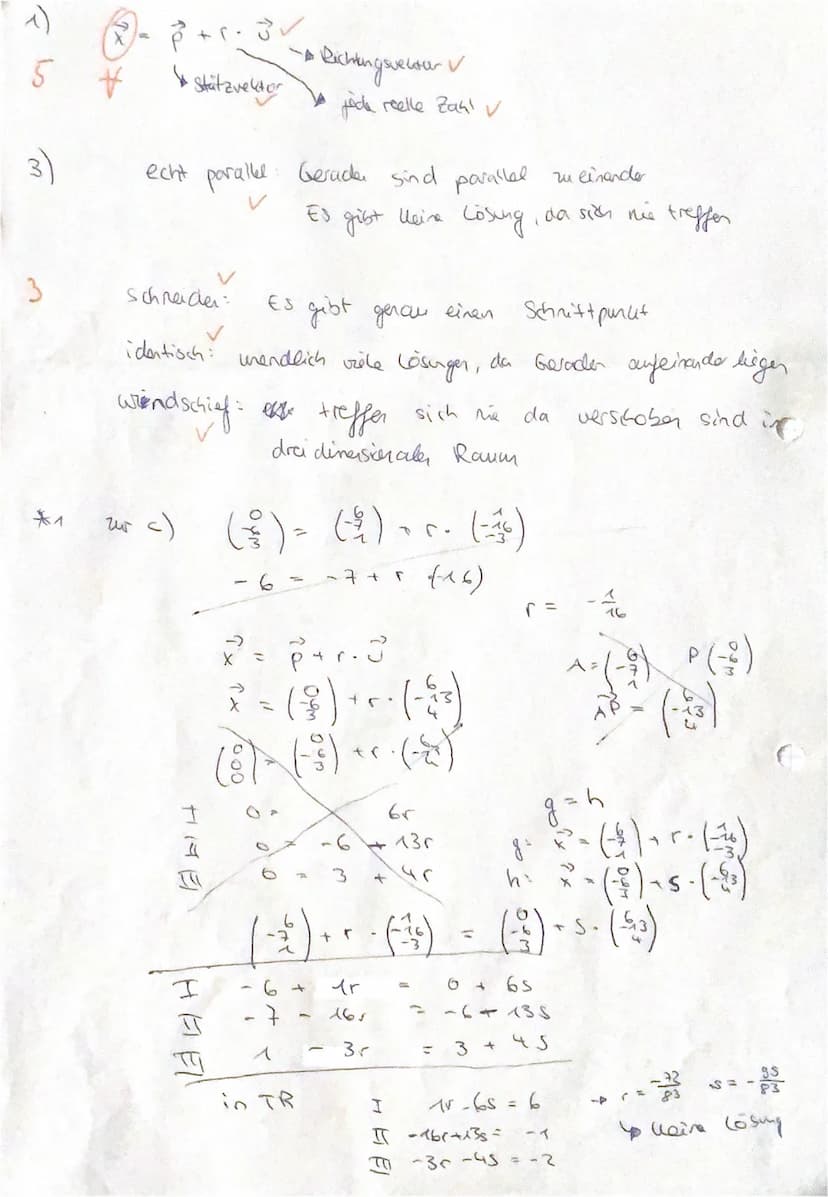 1) x⃗ = p⃗ + r · u⃗ ✓
→ Richtungsvektor ✓
5 → Stützvektor ✓
→ jede reelle Zahl ✓
3) echt parallel: Geraden sind parallel zueinander ✓
Es gibt keine Lösung, da sich nie treffen
3 schneiden: Es gibt genau einen Schnittpunkt ✓
identisch: unendlich viele Lösungen, da Geraden aufeinander liegen ✓
windschief: treffen sich nie da verschoben sind in ✓
dreidimensionalen Raum
*1 zur c) (0 -6 3) = (-6 -7 1) + r · (1 -16 -3)
-6 = -7 + r (-16)
r = -1/16
x⃗ = p⃗ + r · u⃗
A = (-6 -7 1) P (0 -6 3)
x⃗ = (0 -6 3) + r · (6 -13 4)
AP⃗ = (6 -13 4)
(0 0 0) = (0 -6 3) + r ·
I 0 = 6r
II 0 = -6 + 13r
III 0 = 3 + 4r
g = h
g: x⃗ = (-6 -7 1) + r · (1 -16 -3)
h: x⃗ = (0 -6 3) + s · (6 -13 4)
(-6 -7 1) + r · (1 -16 -3) = (0 -6 3) + s · (6 -13 4)
I -6 + 1r = 0 + 6s
II -7 - 16r = -6 + 13s
III 1 - 3r = 3 + 4s
in TR
I 1r - 6s = 6 → r = -72/83 s = -95/83
II -16r + 13s = -1 ↳ keine Lösung
III -3r - 4s = -2